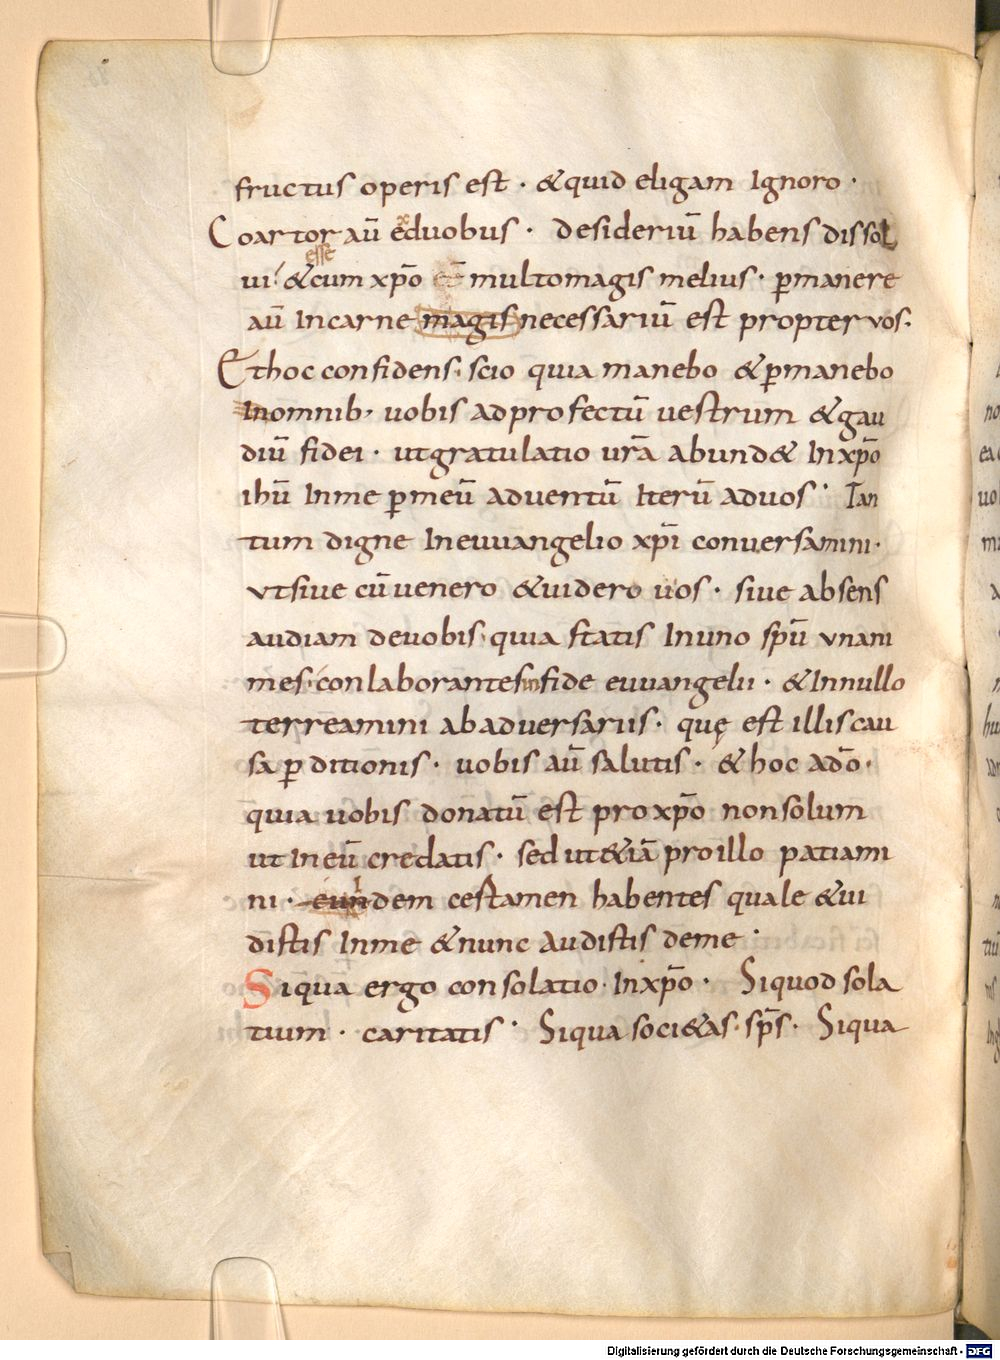 fructus operis est · &quid eligam Ignoro ·
Coartor aū eduobus · desideriū habens dissol
x
esse
ui · &cum xp̄o multomagis melius · p̄manere
aū Incarne magis necessariū est propter vos ·
Ethoc confidens · scio quia manebo &p̄manebo
Inomnib; uobis adprofectū uestrum &gau
diū fidei · utgratulatio ur̄a abund& Inxp̄o
ihū Inme p̄meū aduentū Iterū aduos · Tan
tum digne Ineuuangelio xp̄i conuersamini ·
vtsiue cū uenero &uidero uos · siue absens
audiam deuobis · quia statis Inuno sp̄u vnani
mes · conlaborantes in fide euuangelii · &Innullo
terreamini abaduersariis · quę est illis cau
sa p̄ditionis · uobis aū salutis · &hoc ad̄o ·
quia uobis donatū est proxp̄o nonsolum
ut Ineū credatis · sed ut&iā proillo patiami
ni · eundem certamen habentes quale &ui
distis Inme &nunc audistis deme ·
Siqua ergo consolatio · Inxp̄o · Siquod sola
tium · caritatis · Siqua soci&as · sp̄s · Siqua
Digitalisierung gefördert durch die Deutsche Forschungsgemeinschaft - DFG